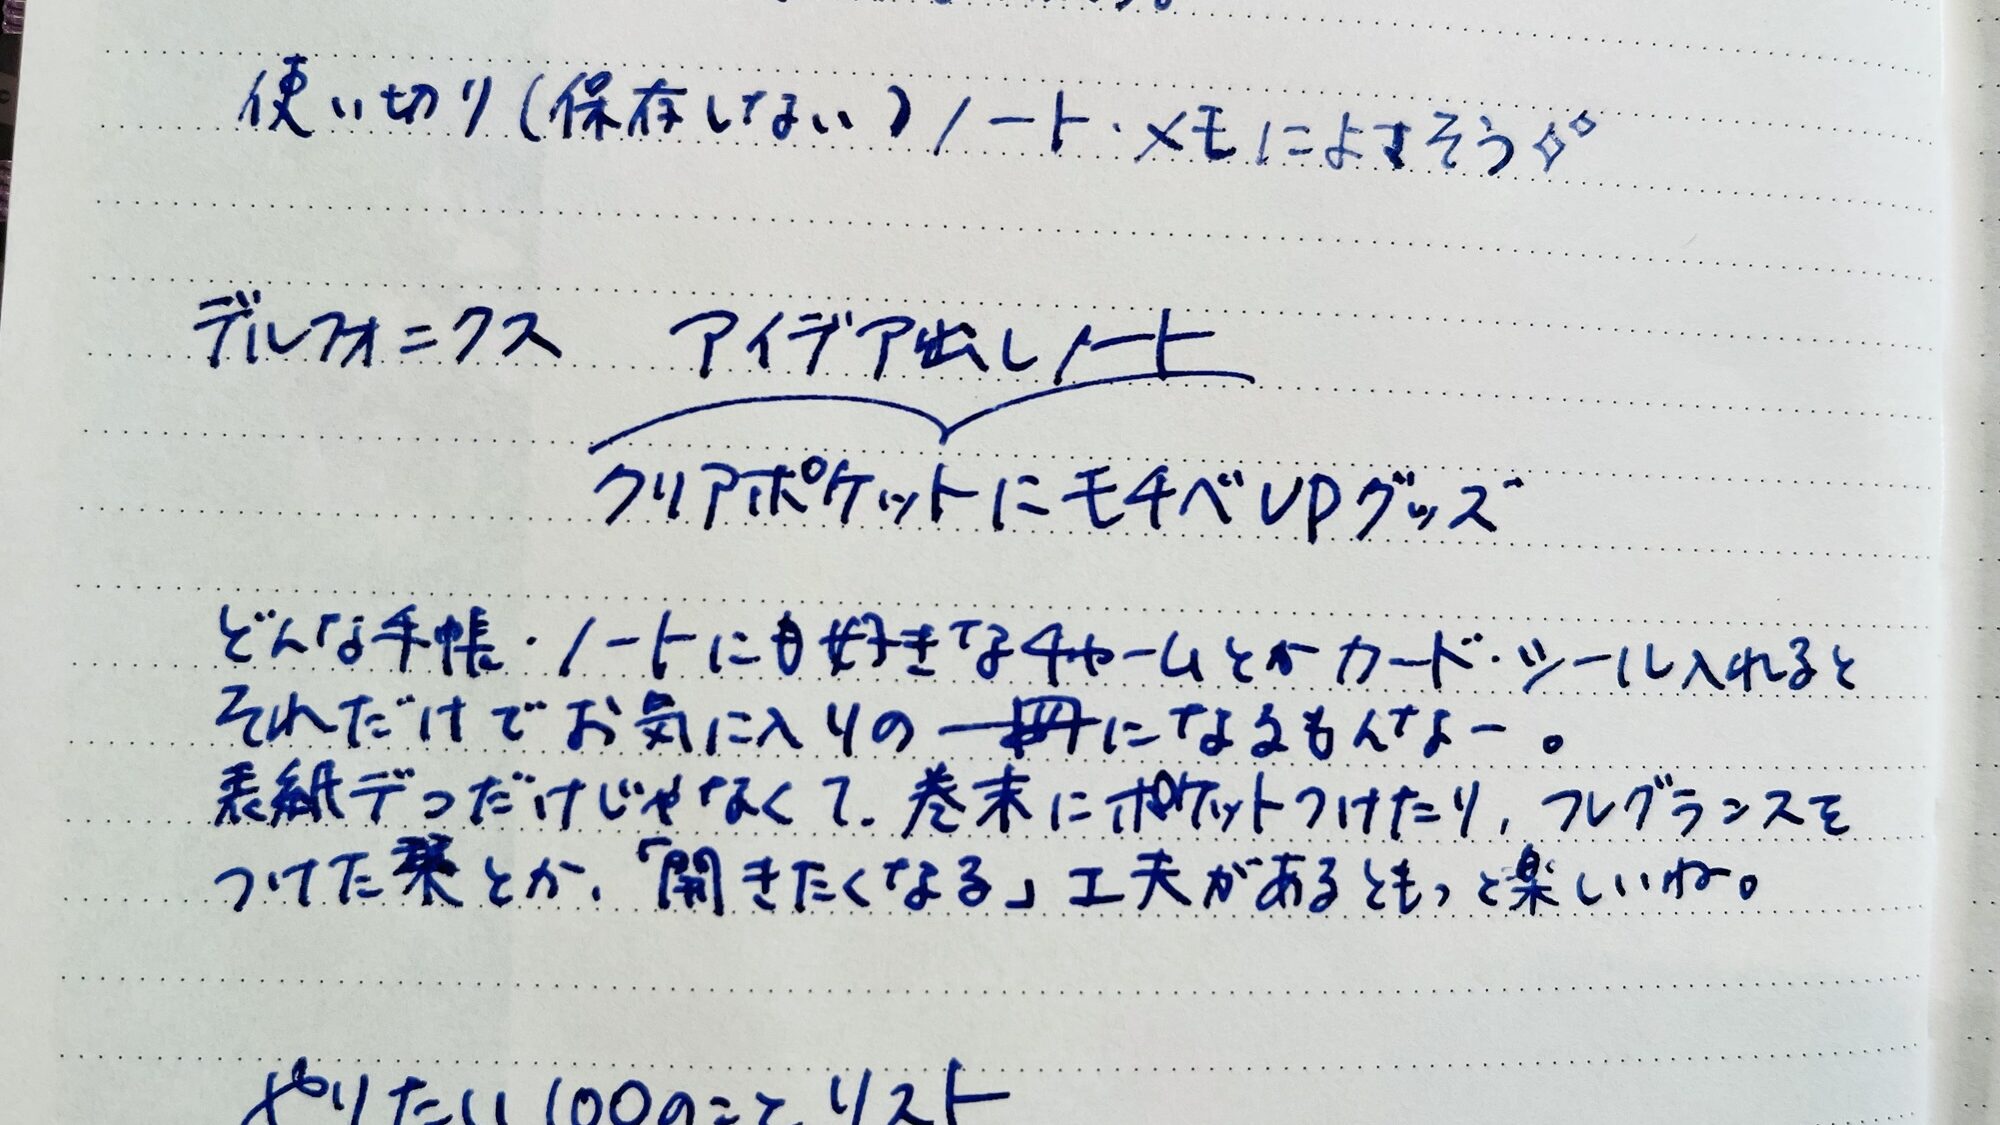 使い切り(保存しない)ノート・メモによさそう
デルフォニックス アイデア出しノート
クリアポケットにモチベUPグッズ
どんな手帳・ノートにも好きなチャームとかカード・ツール入れると
それだけでお気に入りの一冊になるもんなー。
表紙デコだけじゃなくて、巻末にポケットつけたり、フレグランスを
つけた栞とか、「開きたくなる」工夫があるともっと楽しいね。
やりたい100のことリスト